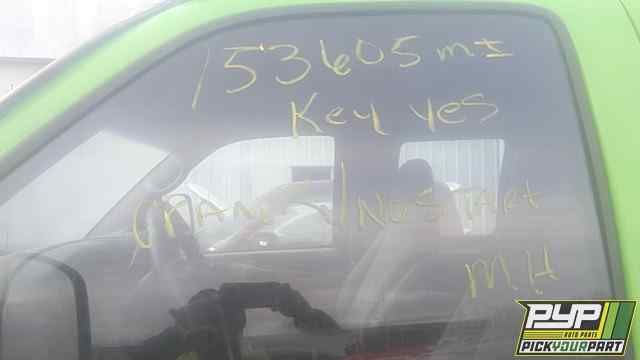 153605 mI
Key yes
CRANK / NO START
MH
PYP
AUTO PARTS
PICKYOURPART